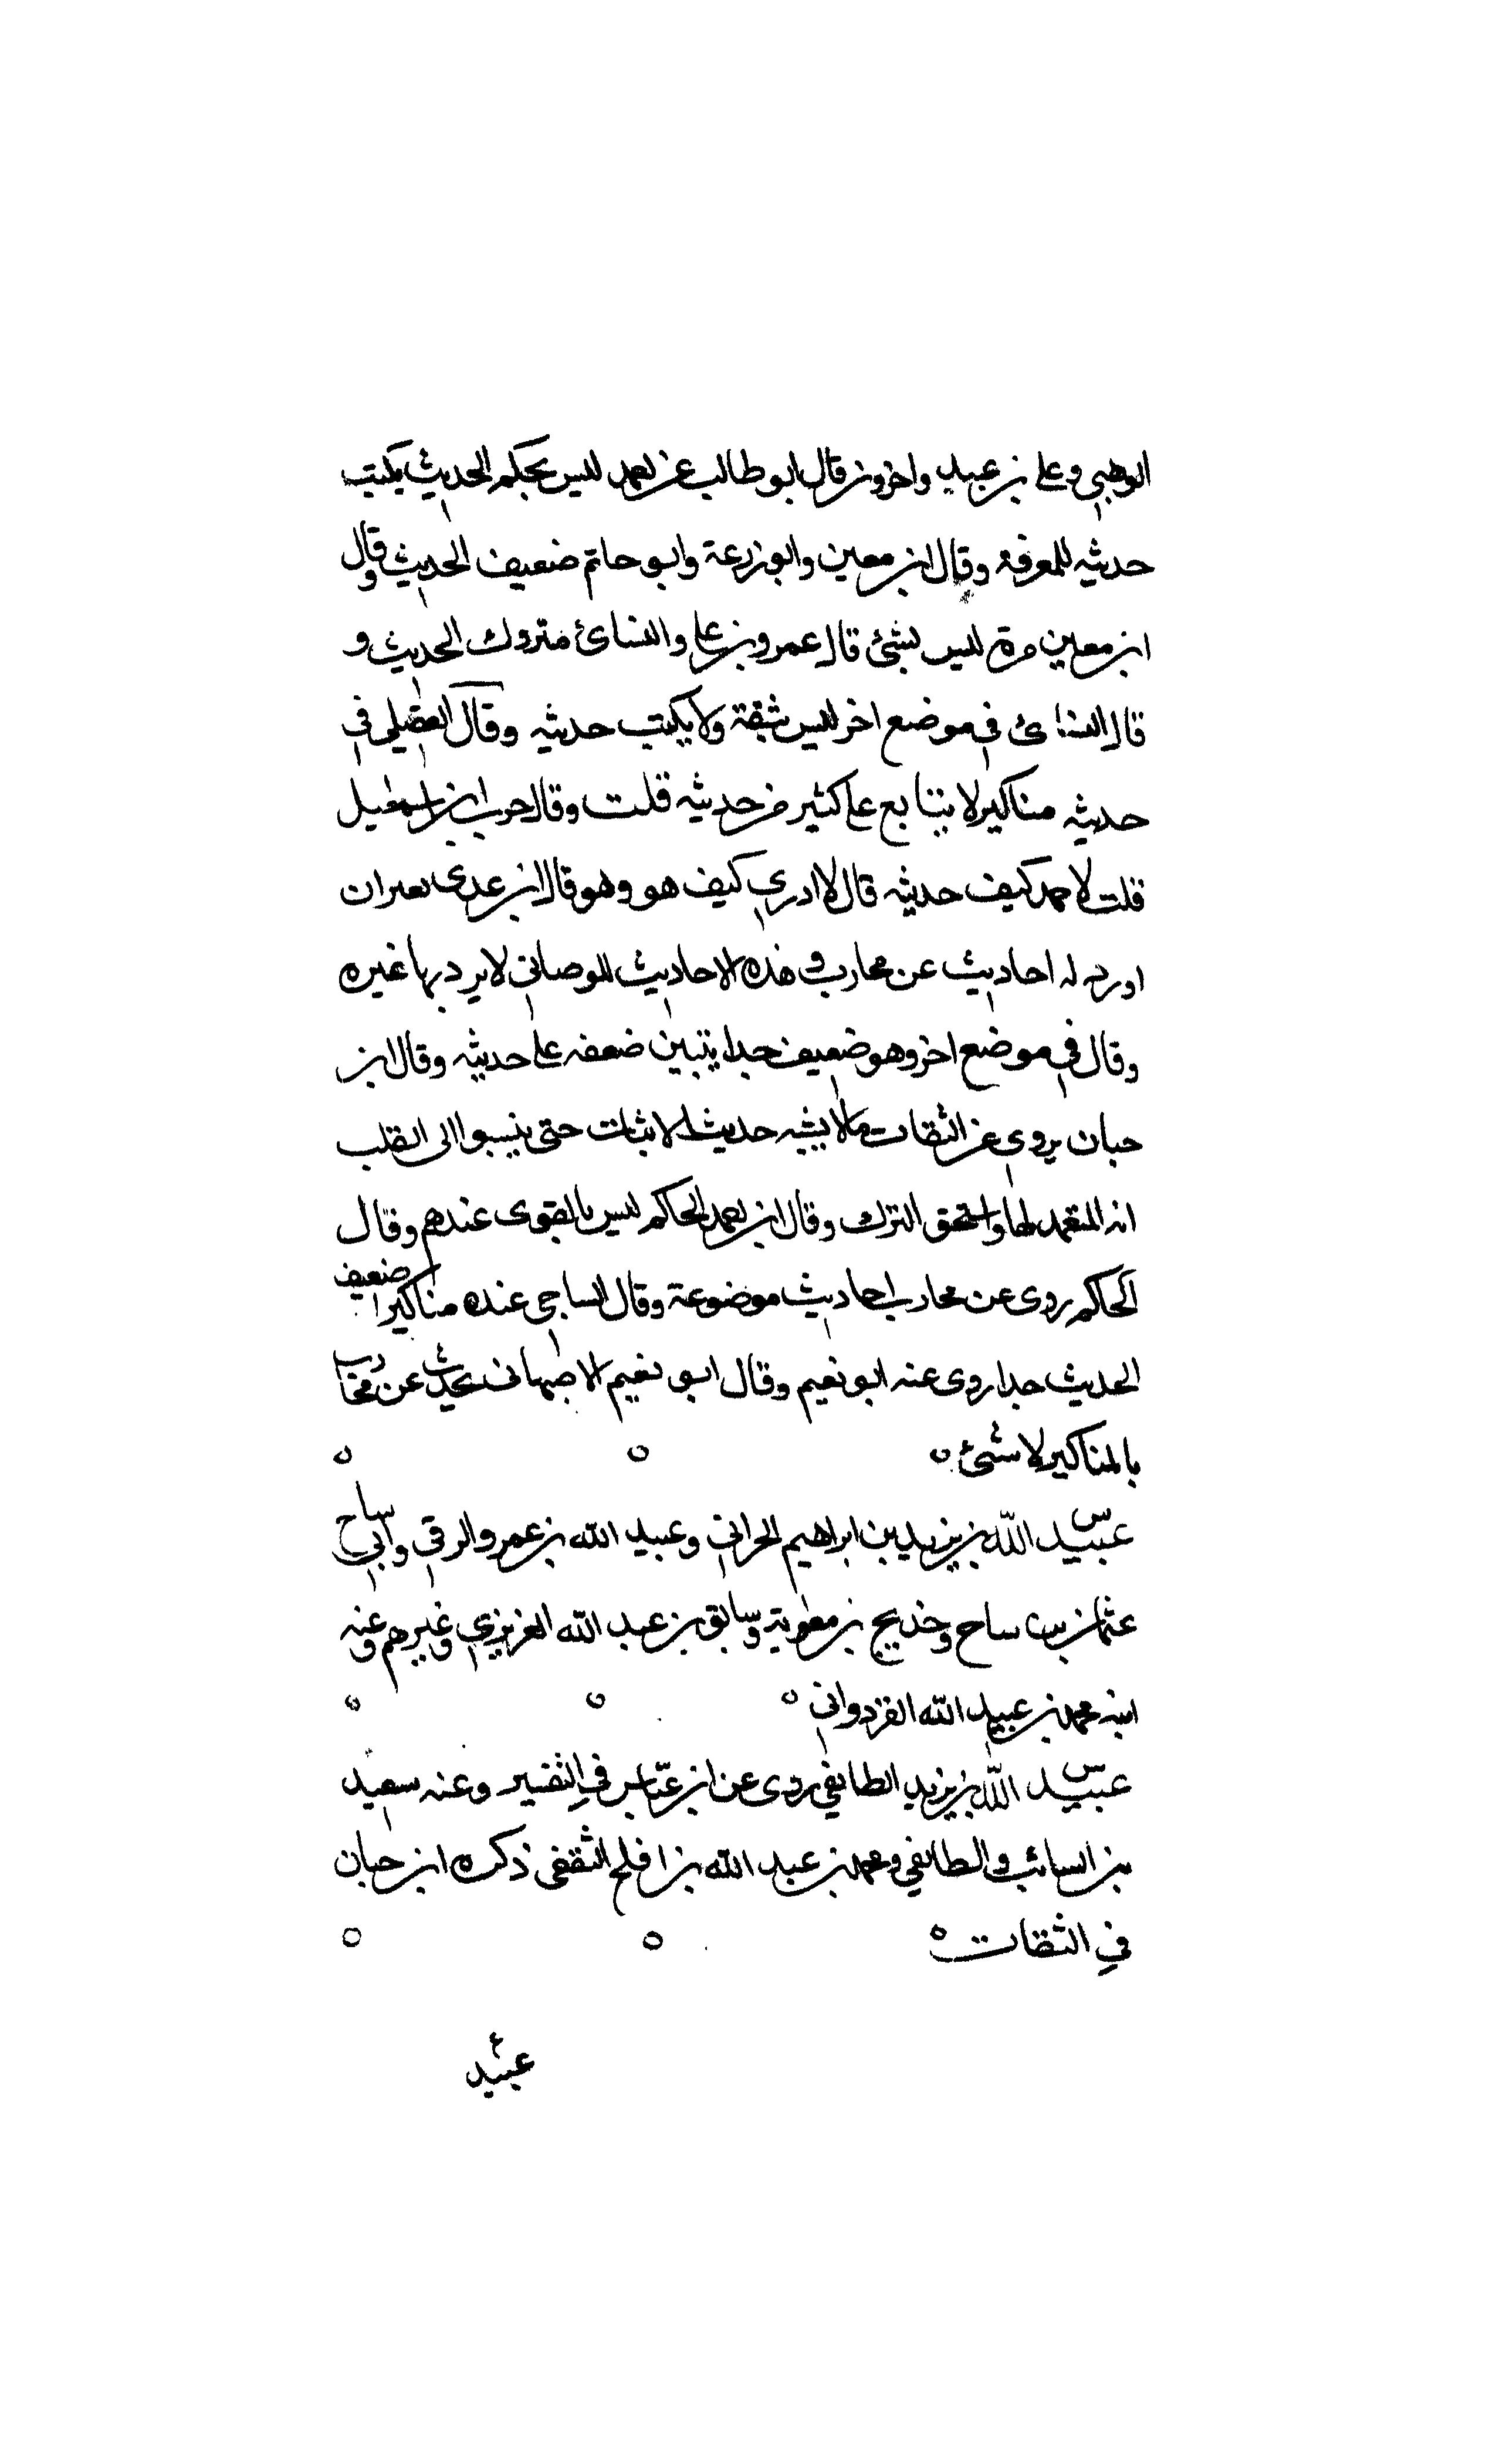 الوهبي وعلى بن عبيد واخرون قال ابو طالب عن احمد ليس بحكم الحديث يكتب
حديثه للمعرفة وقال ابن معين وابو زرعة وابو حاتم ضعيف الحديث وقال
ابن معين مرة ليس بشئ قال عمرو بن على والنسائ متروك الحديث و
قال النسائ في موضع اخر ليس بثقة ولا يكتب حديثه وقال العقيلى في
حديثه مناكير لا يتابع على كثير من حديثه قلت وقال حرب ابن اسمعيل
قلت لاحمد كيف حديثه قال لا ادري كيف هو وهو قال ابن عدى بعد ان
اورد له احاديث عن محارب وهذه الاحاديث للوصافي لا يرد بها غيره
وقال في موضع اخر وهو ضعيف جدا يتبين ضعفه على حديثه وقال ابن
حبان يروي عن الثقات مالا يشبه حديث الاثبات حتى ينسبوا الى القلب
انه المتعمد لها واستحق الترك وقال ابن احمد الحاكم ليس بالقوى عندهم وقال
الحاكم روى عن محارب احاديث موضوعة وقال الساجي عنده مناكير ضعيف
الحديث جدا روى عنه ابو نعيم وقال ابو نعيم الاصبهانى يحدث عن محارب
بالمناكير لا شئ ه ه ه
س عبيد الله بن يزيد بن ابراهيم الحراني وعبيد الله بن عمرو الرقي وابي ساح
عثمان بن ساح وخديج بن معوية وسابق بن عبد الله العزيزي وغيرهم وعنه
ابنه محمد بن عبيد الله القردواني ه ه ه
س عبيد الله بن يزيد الطايفي روى عن ابن عباس في التفسير وعنه سعيد
بن السائب والطايفي ومحمد بن عبد الله بن افلح الثقفى ذكره ابن حبان
في الثقات ه ه ه
عبيد